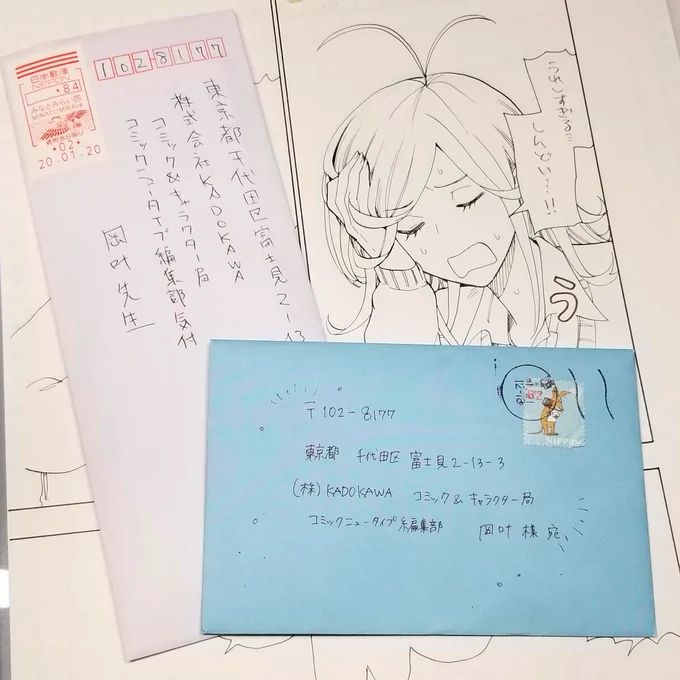 日本郵便
NIPPON
・84
みなとみらい四
MINATOMIRAI 4
*02*
20.01.20
1028177
東京都千代田区富士見2-13
株式会社KADOKAWA
コミック&キャラクター局
コミックニュータイプ編集部気付
岡叶先生
うれしすぎる…
しんどい……!!
う
12-18
82
NIPPON
〒102-8177
東京都 千代田区 富士見2-13-3
(株)KADOKAWA コミック&キャラクター局
コミックニュータイプ編集部 岡叶様宛